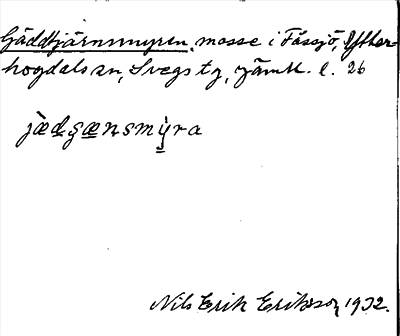 Gäddtjärnsmyren, mosse i Fåssjö, Ytter-
hogdals sn, Svegs tg, Jämtl. l. 26
jæ̀dʂænsmy̠ra
Nils Erik Eriksson, 1932.